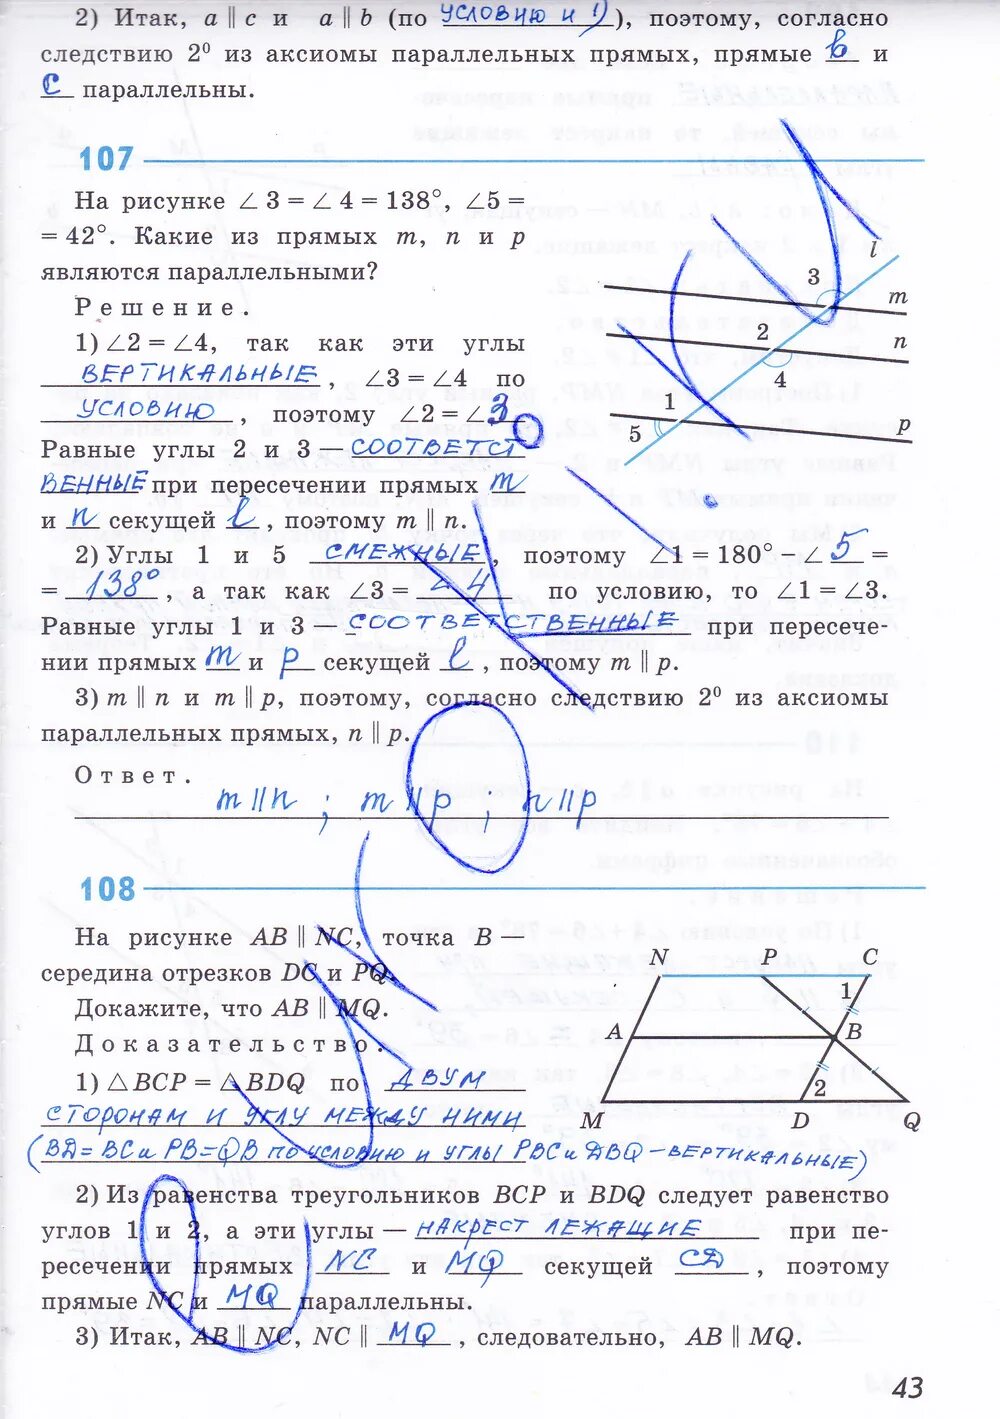 2) Итак, a ∥ c и a ∥ b (по условию и 1)), поэтому, согласно
следствию 2⁰ из аксиомы параллельных прямых, прямые b и
c параллельны.
107
На рисунке ∠3 = ∠4 = 138°, ∠5 =
= 42°. Какие из прямых m, n и p
являются параллельными?
Решение.
1) ∠2 = ∠4, так как эти углы
ВЕРТИКАЛЬНЫЕ, ∠3 = ∠4 по
УСЛОВИЮ, поэтому ∠2 = ∠3.
Равные углы 2 и 3 — СООТВЕТСТ
ВЕННЫЕ при пересечении прямых m
и n секущей l, поэтому m ∥ n.
2) Углы 1 и 5 СМЕЖНЫЕ, поэтому ∠1 = 180° − ∠5 =
= 138°, а так как ∠3 = ∠4 по условию, то ∠1 = ∠3.
Равные углы 1 и 3 — СООТВЕТСТВЕННЫЕ при пересече-
нии прямых m и p секущей l, поэтому m ∥ p.
3) m ∥ n и m ∥ p, поэтому, согласно следствию 2⁰ из аксиомы
параллельных прямых, n ∥ p.
Ответ.
m ∥ n ; m ∥ p ; n ∥ p
l
3
m
2
n
4
1
5
p
108
На рисунке AB ∥ NC, точка B —
середина отрезков DC и PQ.
Докажите, что AB ∥ MQ.
Доказательство.
1) △BCP = △BDQ по ДВУМ
СТОРОНАМ И УГЛУ МЕЖДУ НИМИ
(BD = BC и PB = QB ПО УСЛОВИЮ И УГЛЫ PBC и DBQ - ВЕРТИКАЛЬНЫЕ)
2) Из равенства треугольников BCP и BDQ следует равенство
углов 1 и 2, а эти углы — НАКРЕСТ ЛЕЖАЩИЕ при пе-
ресечении прямых NC и MQ секущей CD, поэтому
прямые NC и MQ параллельны.
3) Итак, AB ∥ NC, NC ∥ MQ, следовательно, AB ∥ MQ.
N P C
1
A B
2
M D Q
43